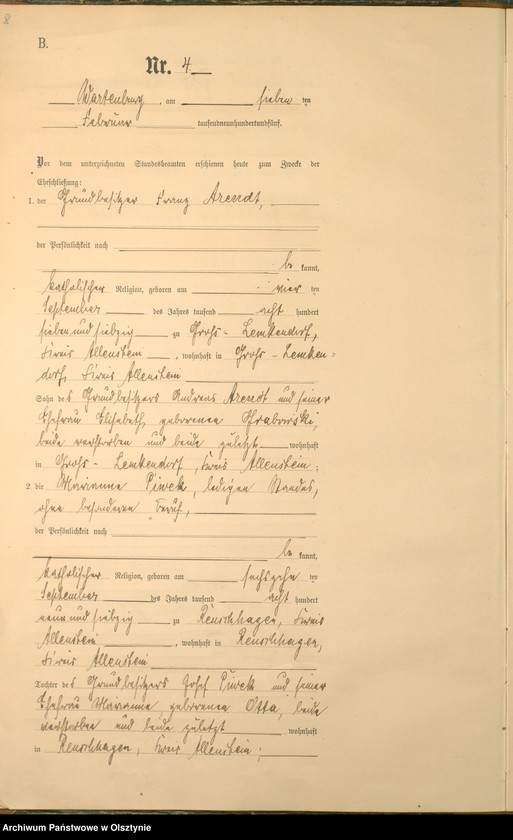 8
B.
Nr. 4
Wartenburg, am sieben ten
Februar tausendneunhundertundfünf.
Vor dem unterzeichneten Standesbeamten erschienen heute zum Zwecke der
Eheschließung:
1. der Grundbesitzer Franz Arendt,
der Persönlichkeit nach
be kannt,
katholischer Religion, geboren am vier ten
September des Jahres tausend acht hundert
sieben und siebzig zu Groß-Lemkendorf,
Kreis Allenstein, wohnhaft in Groß-Lemken=
dorf, Kreis Allenstein
Sohn des Grundbesitzers Andreas Arendt und seiner
Ehefrau Elisabeth geborenen Grabowski,
beide verstorben und beide zuletzt wohnhaft
in Groß-Lemkendorf, Kreis Allenstein;
2 die Marianne Piwek, ledigen Standes,
ohne besonderen Beruf,
der Persönlichkeit nach
be kannt,
katholischer Religion, geboren am sechszehn ten
September des Jahres tausend acht hundert
neun und siebzig zu Reuschhagen, Kreis
Allenstein, wohnhaft in Reuschhagen,
Kreis Allenstein
Tochter des Grundbesitzers Josef Piwek und seiner
Ehefrau Marianne geborenen Otta, beide
verstorben und beide zuletzt wohnhaft
in Reuschhagen, Kreis Allenstein;
Archiwum Państwowe w Olsztynie